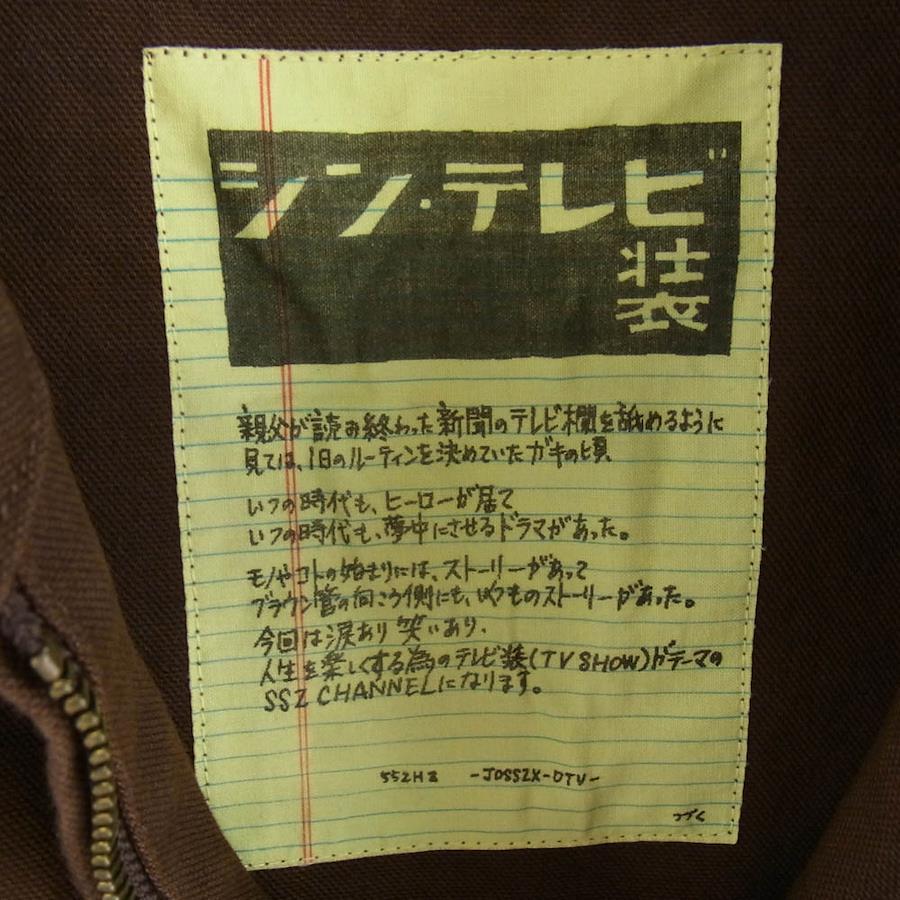 シン・テレビ
装
親父が読み終わった新聞のテレビ欄を舐めるように
見ては、1日のルーティンを決めていたガキの頃
いつの時代も、ヒーローが居て
いつの時代も、夢中にさせるドラマがあった。
モノやコトの始まりには、ストーリーがあって
ブラウン管の向こう側にも、いくつものストーリーがあった。
今回は涙あり笑いあり、
人生を楽しくする為のテレビ装(TV SHOW)がテーマの
SSZ CHANNELになります。
SSZHz -JOSSZX-DTV-
つづく